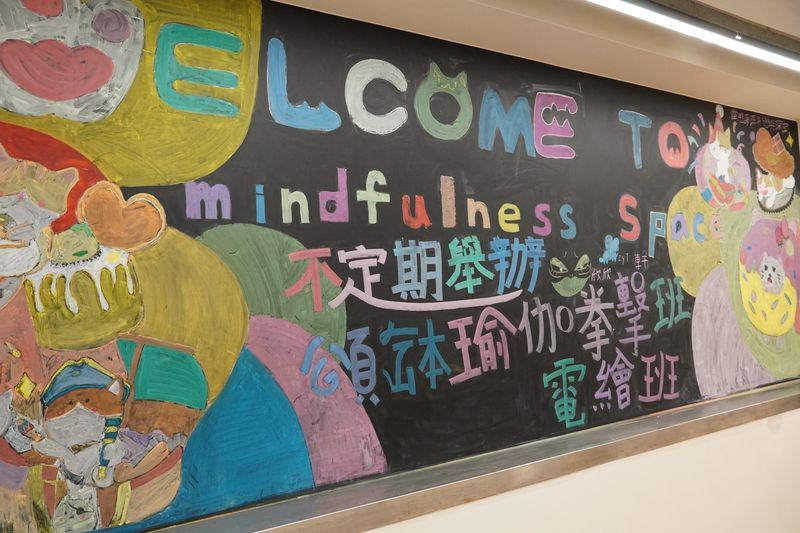 WELCOME TO
mindfulness space
不定期舉辦
頌缽瑜伽。拳擊班
電繪班
欣欣